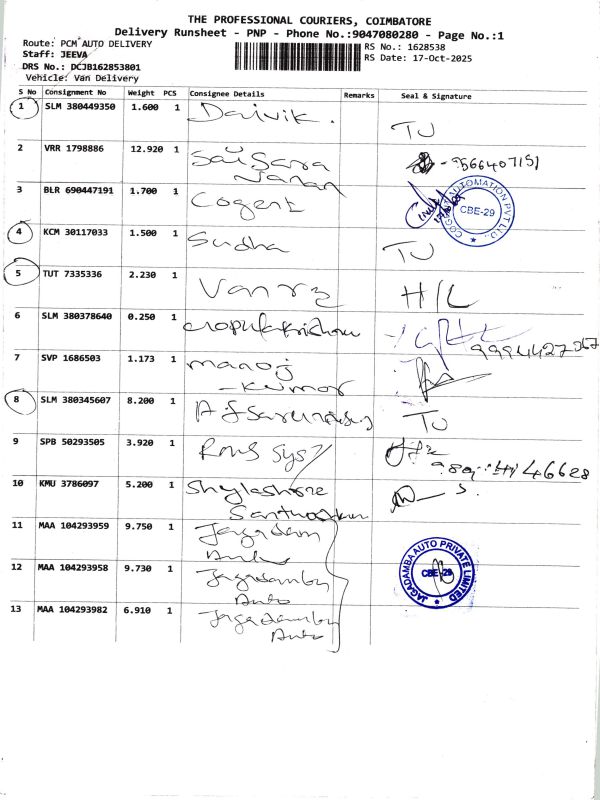 THE PROFESSIONAL COURIERS, COIMBATORE
Delivery Runsheet - PNP - Phone No.:9047080280 - Page No.:1
Route: PCM AUTO DELIVERY
RS No.: 1628538
Staff: JEEVA
RS Date: 17-Oct-2025
DRS No.: DCJB162853801
Vehicle: Van Delivery
S No Consignment No Weight PCS Consignee Details Remarks Seal & Signature
1 SLM 380449350 1.600 1 Daivik. TU
2 VRR 1798886 12.920 1 Sai Sara
Janan
3 BLR 690447191 1.700 1 Cogent CBE-29
4 KCM 30117033 1.500 1 Sudha TU
5 TUT 7335336 2.230 1 H/L
6 SLM 380378640 0.250 1
7 SVP 1686503 1.173 1 manoj
-kumar
8 SLM 380345607 8.200 1 TU
9 SPB 50293505 3.920 1
10 KMU 3786097 5.200 1
11 MAA 104293959 9.750 1
12 MAA 104293958 9.730 1 Jagadamba
Auto
JAGADAMBA AUTO PRIVATE LIMITED
CBE-29
13 MAA 104293982 6.910 1 Jagadamba
Auto